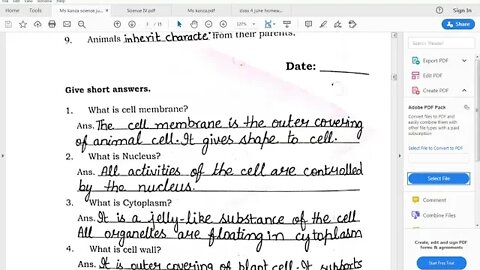 Home
Tools
Ms kanza science ju...
Science IV.pdf
Ms kanza.pdf
class 4 june homew...
Sign In
127%
9. Animals inherit characte from their parents.
Date:
Give short answers.
1. What is cell membrane?
Ans. The cell membrane is the outer covering
of animal cell. It gives shape to cell.
2. What is Nucleus?
Ans. All activities of the cell are controlled
by the nucleus.
3. What is Cytoplasm?
Ans. It is a jelly-like substance of the cell
All organelles are floating in cytoplasm
4. What is cell wall?
Ans. It is outer covering of plant cell. It supports
Export PDF
Edit PDF
Create PDF
Adobe PDF Pack
Convert files to PDF and
easily combine them with
other file types with a paid
subscription
Select File to Convert to PDF
Select File
Comment
Combine Files
Create, edit and sign PDF
forms & agreements
Start Free Trial